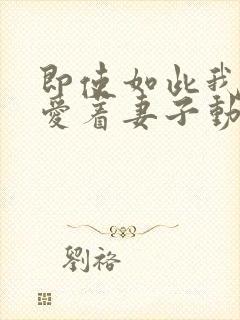 即使如此我
愛着妻子動
劉裕